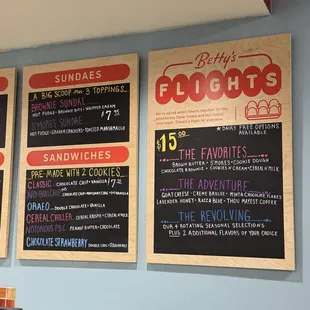 SUNDAES
A BIG SCOOP PLUS 3 TOPPINGS
BROWNIE SUNDAE $7.00
HOT FUDGE • BROWNIE BITS • WHIPPED CREAM
S'MORES SUNDAE
HOT FUDGE • GRAHAM CRACKERS • TOASTED MARSHMALLO
SANDWICHES
PRE-MADE WITH 2 COOKIES
CLASSIC CHOCOLATE CHIP • VANILLA
OREAO DOUBLE CHOCOLATE • VANILLA
CEREAL CHILLER CEREAL CRISPS • CEREAL MILK
NOTORIOUS P.B.C. PEANUT BUTTER • CHOCOLATE
CHOCOLATE STRAWBERRY DOUBLE CHOC • STRAWBERRY
Betty's
FLIGHTS
$15.00
* DAIRY FREE OPTIONS
AVAILABLE
THE FAVORITES
BROWN BUTTER • S'MORES • COOKIE DOUGH
CHOCOLATE BROWNIE • COOKIES N' CREAM • CEREAL MILK
THE ADVENTURE
GOAT CHEESE • CRÈME BRULEE • MINTA CHOCOLATE
LAVENDER HONEY • RAZZA BLUE • THOU MAYEST COFFEE
THE REVOLVING
OUR 4 ROTATING SEASONAL SELECTIONS
PLUS 2 ADDITIONAL FLAVORS OF YOUR CHOICE